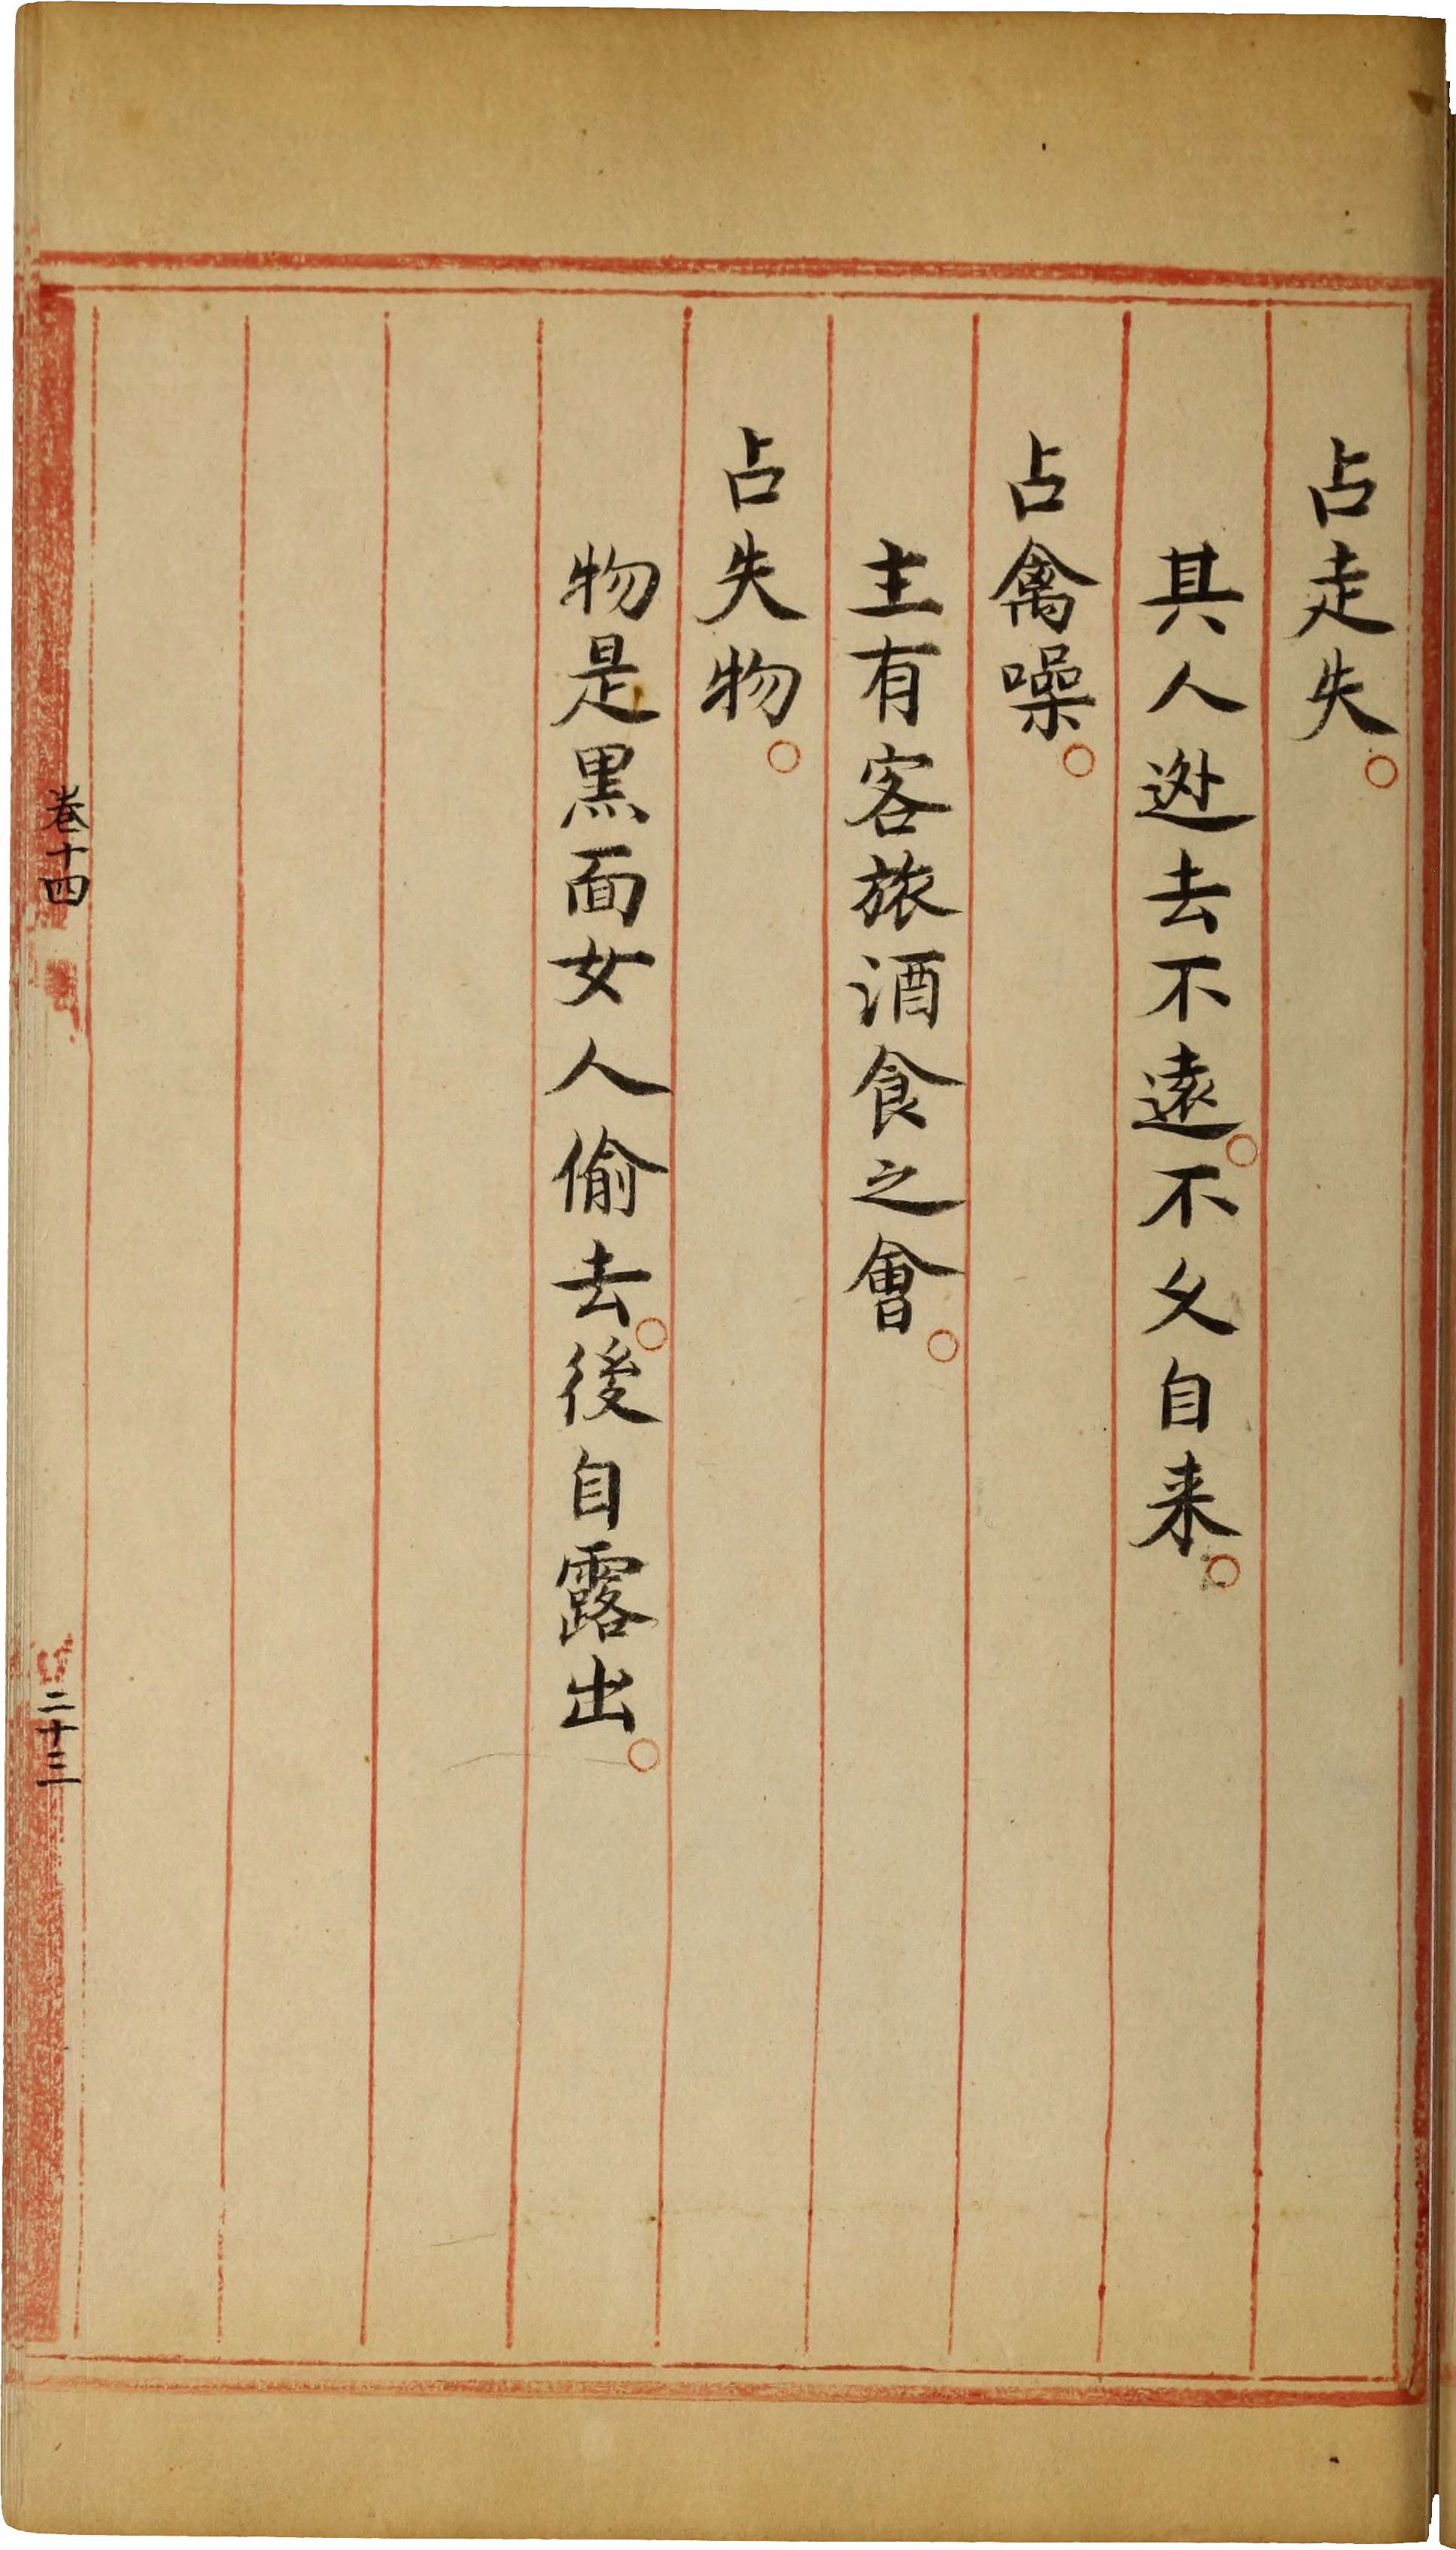 占走失。
其人逃去不遠。不久自来。
占禽噪。
主有客旅酒食之會。
占失物。
物是黑面女人偷去。後自露出。
卷十四
二十三